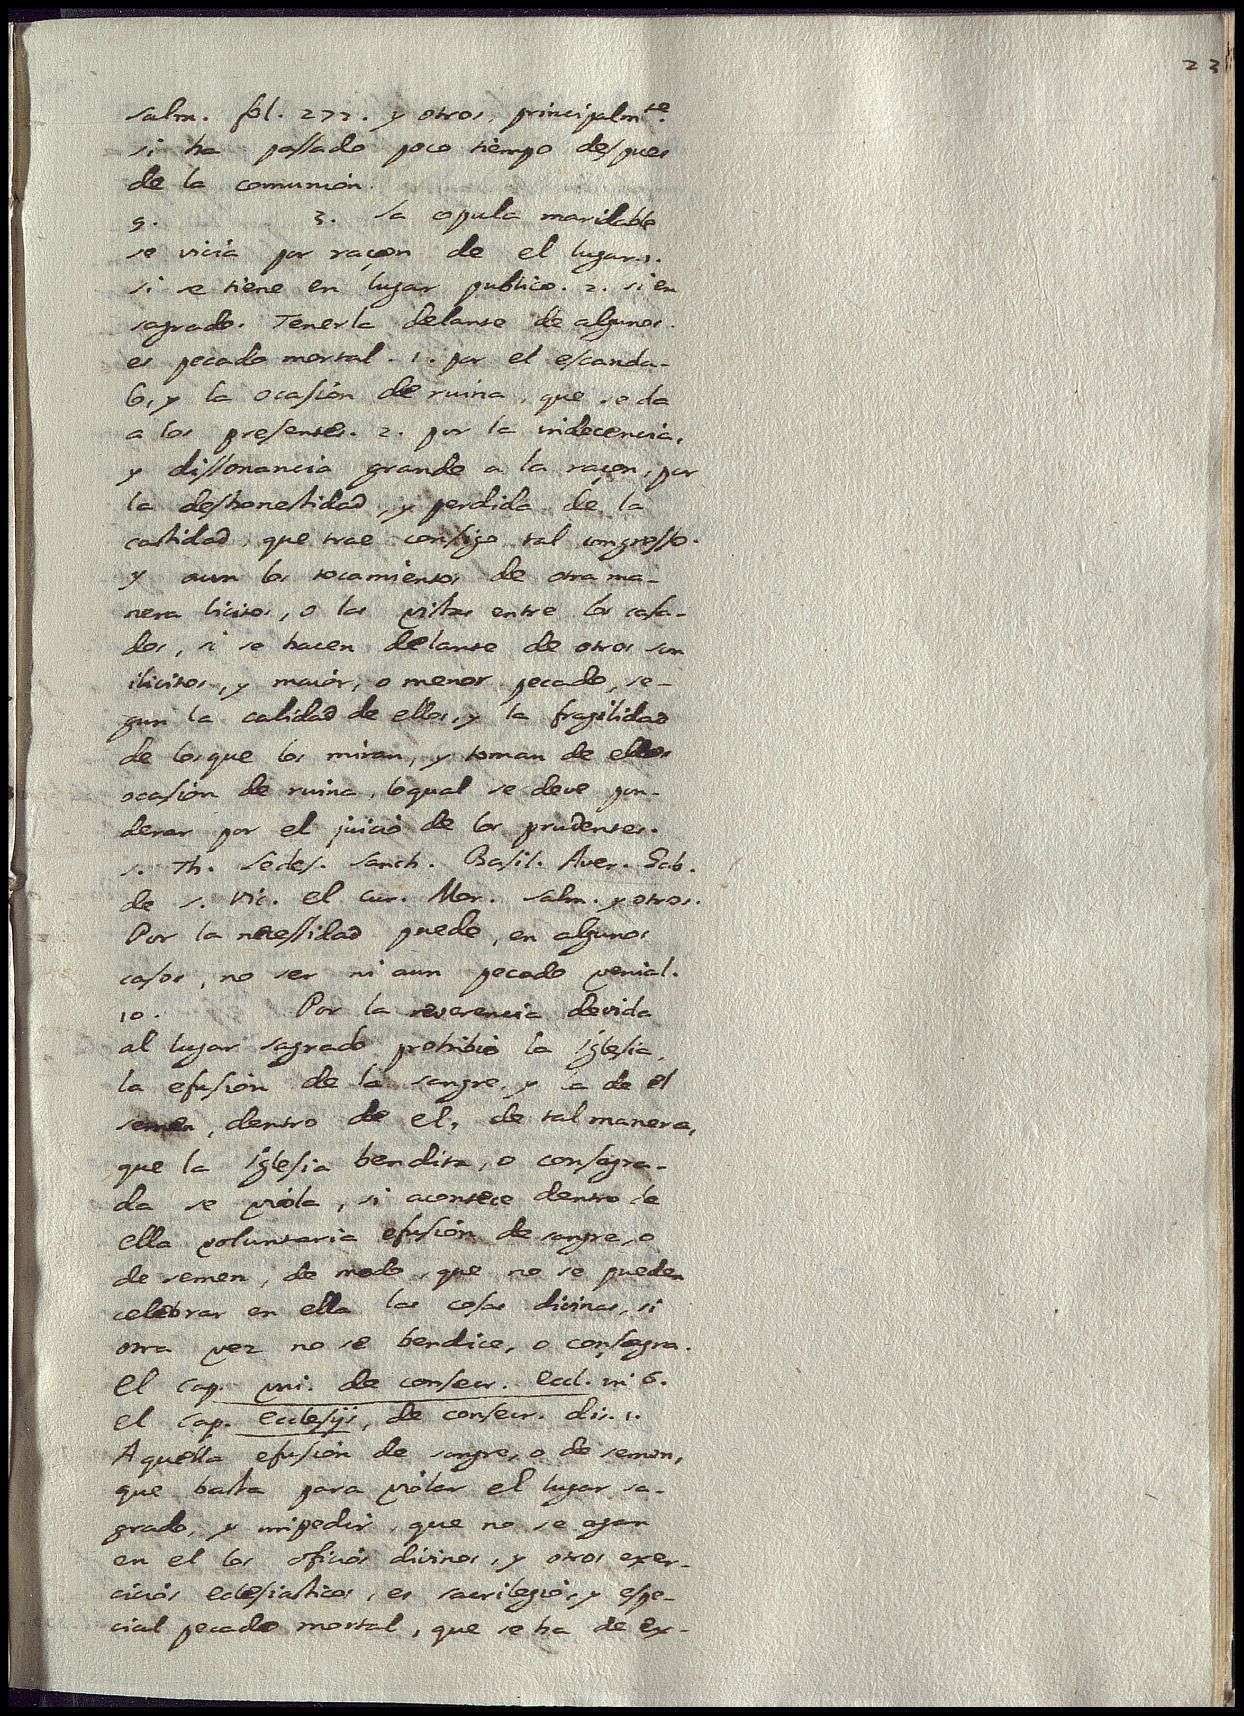 23
salm. fol. 277. y otros, principalm.te
si ha passado poco tiempo despues
de la comunion.
9. 3. la copula maridable
se vicia por raçon de el lugar. 1.
si se tiene en lugar publico. 2. si en
sagrado. Tenerla delante de algunos
es pecado mortal. 1. por el escanda-
lo, y la ocasion de ruina, que se da
a los presentes. 2. por la indecencia,
y dissonancia grande a la raçon, por
la deshonestidad, y perdida de la
castidad, que trae consigo tal congresso.
y aun los tocamientos de otra ma-
nera licitos, o las vistas entre los casa-
dos, si se hacen delante de otros son
ilicitos, y maior, o menor pecado, se-
gun la calidad de ellos, y la fragilidad
de los que los miran, y toman de ellos
ocasion de ruina, loqual se deve pon-
derar por el juicio de los prudentes.
s. Th. Ledes. Sanch. Basil. Aver. Gab.
de s. Vic. el cur. Mor. salm. y otros.
Por la necessidad puede, en algunos
casos, no ser ni aun pecado venial.
10. Por la reverencia devida
al lugar sagrado prohibio la Iglesia,
la efusion de la sangre, y la de el
semen, dentro de el, de tal manera,
que la Iglesia bendita, o consagra-
da se viola, si acontece dentro de
ella voluntaria efusion de sangre, o
de semen, de modo, que no se pueden
celebrar en ella las cosas divinas, si
otra vez no se bendice, o consagra.
el cap. uni. de consecr. eccl. in 6.
el cap. Ecclesijs, de consecr. dis. 1.
Aquella efusion de sangre, o de semen,
que basta para violar el lugar sa-
grado, y impedir, que no se agan
en el los oficios divinos, y otros exer-
cicios eclesiasticos, es sacrilegio, y espe-
cial pecado mortal, que se ha de ex-